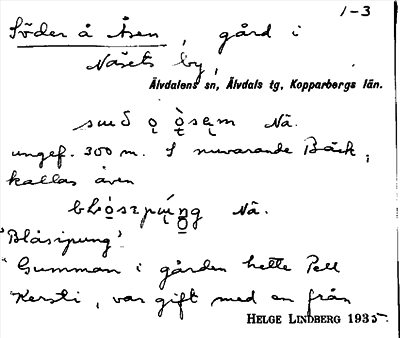 1-3
Söder å Åsen, gård i
Näsets by,
Älvdalens sn, Älvdals tg, Kopparbergs län.
Nä.
ungef. 300 m. S nuvarande Bäck,
kallas även
Nä.
'Blåsipung'
Gumman i gården hette Pell
Kersti, var gift med en från
HELGE LINDBERG 1935.